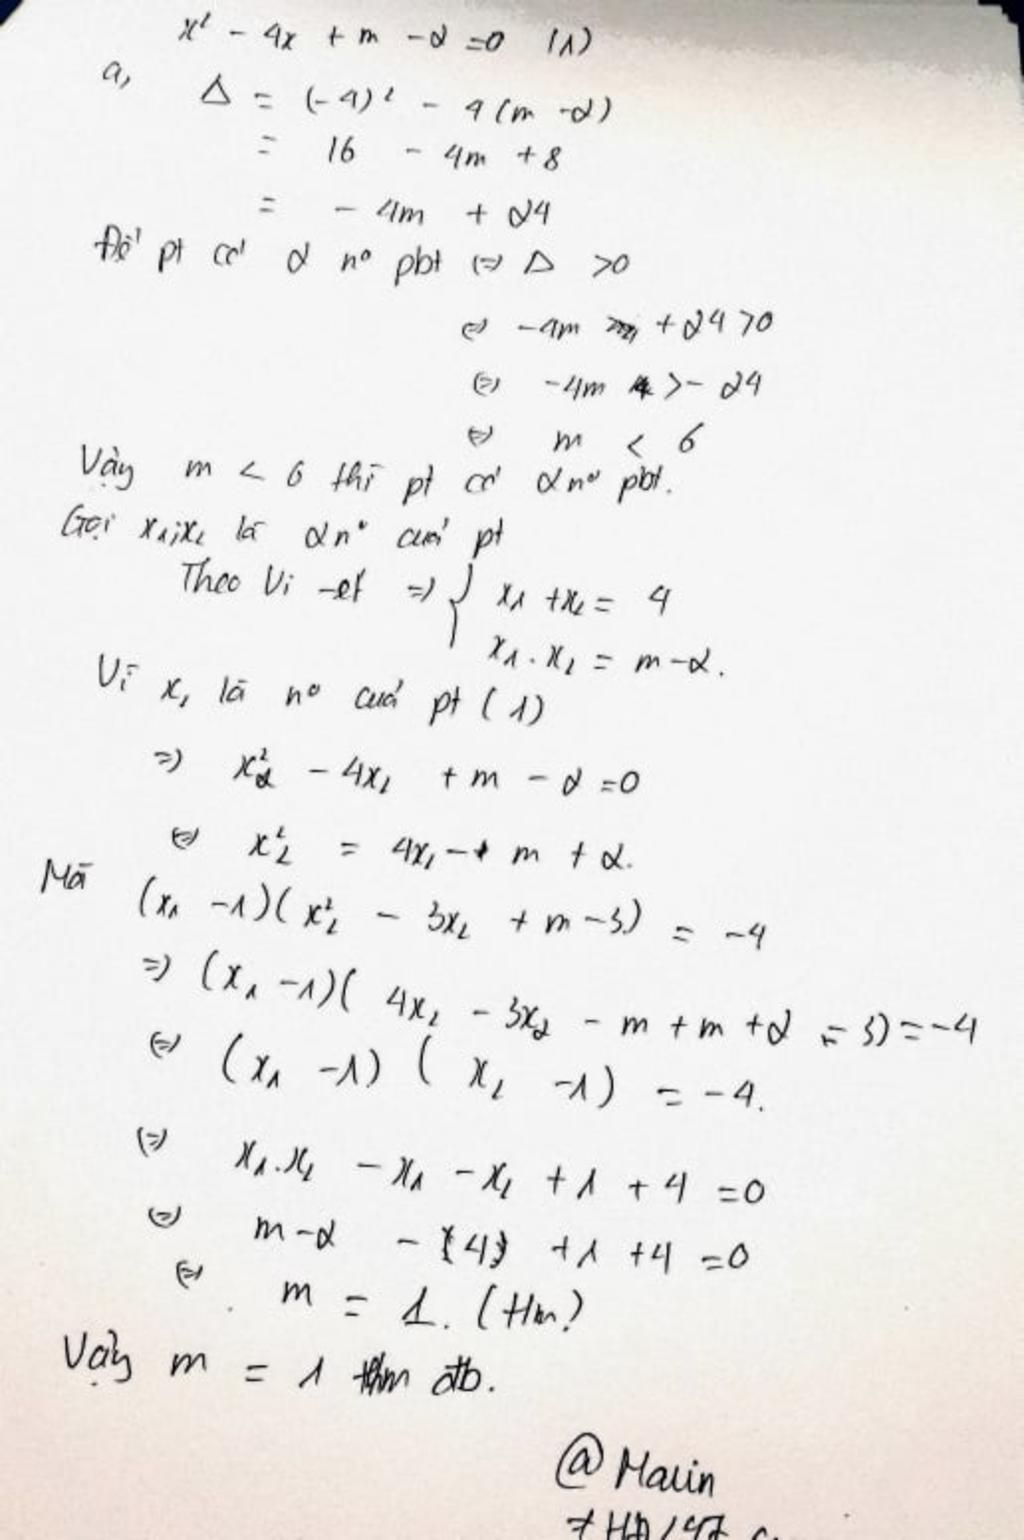 x² - 4x + m - 2 = 0 (1)
a, Δ = (-4)² - 4(m - 2)
= 16 - 4m + 8
= - 4m + 24
Để pt có 2 n° pbt ⇔ Δ > 0
⇔ -4m + 24 > 0
⇔ -4m > - 24
⇔ m < 6
Vậy m < 6 thì pt có 2 n° pbt.
Gọi x₁; x₂ là 2 n° cuả pt
Theo Vi-et ⇒ { x₁ + x₂ = 4
x₁ . x₂ = m - 2.
Vì x₂ là n° cuả pt (1)
⇒ x₂² - 4x₂ + m - 2 = 0
⇔ x₂² = 4x₂ - m + 2.
Mà (x₁ - 1)(x₂² - 3x₂ + m - 3) = -4
⇒ (x₁ - 1)(4x₂ - 3x₂ - m + m + 2 - 3) = -4
⇔ (x₁ - 1)(x₂ - 1) = -4.
⇔ x₁.x₂ - x₁ - x₂ + 1 + 4 = 0
⇔ m - 2 - 4 + 1 + 4 = 0
⇔ m = 1. (tm)
Vậy m = 1 thm đb.
@ Mauin